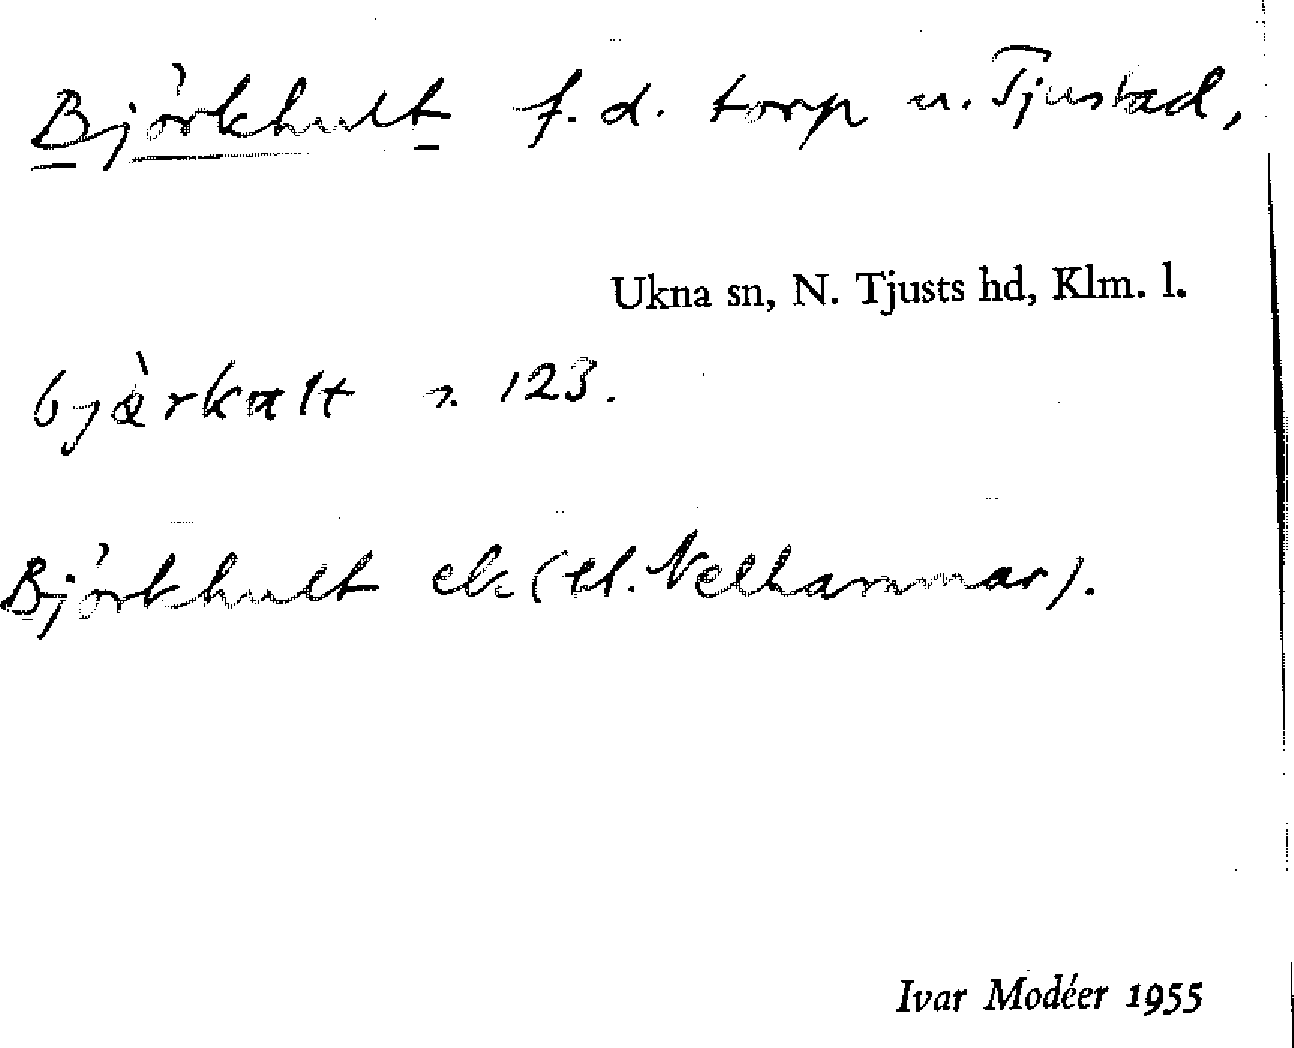 Björkhult f. d. torp u. Tjustad,
Ukna sn, N. Tjusts hd, Klm. l.
123.
Björkhult ek (tl. Nelhammar).
Ivar Modéer 1955